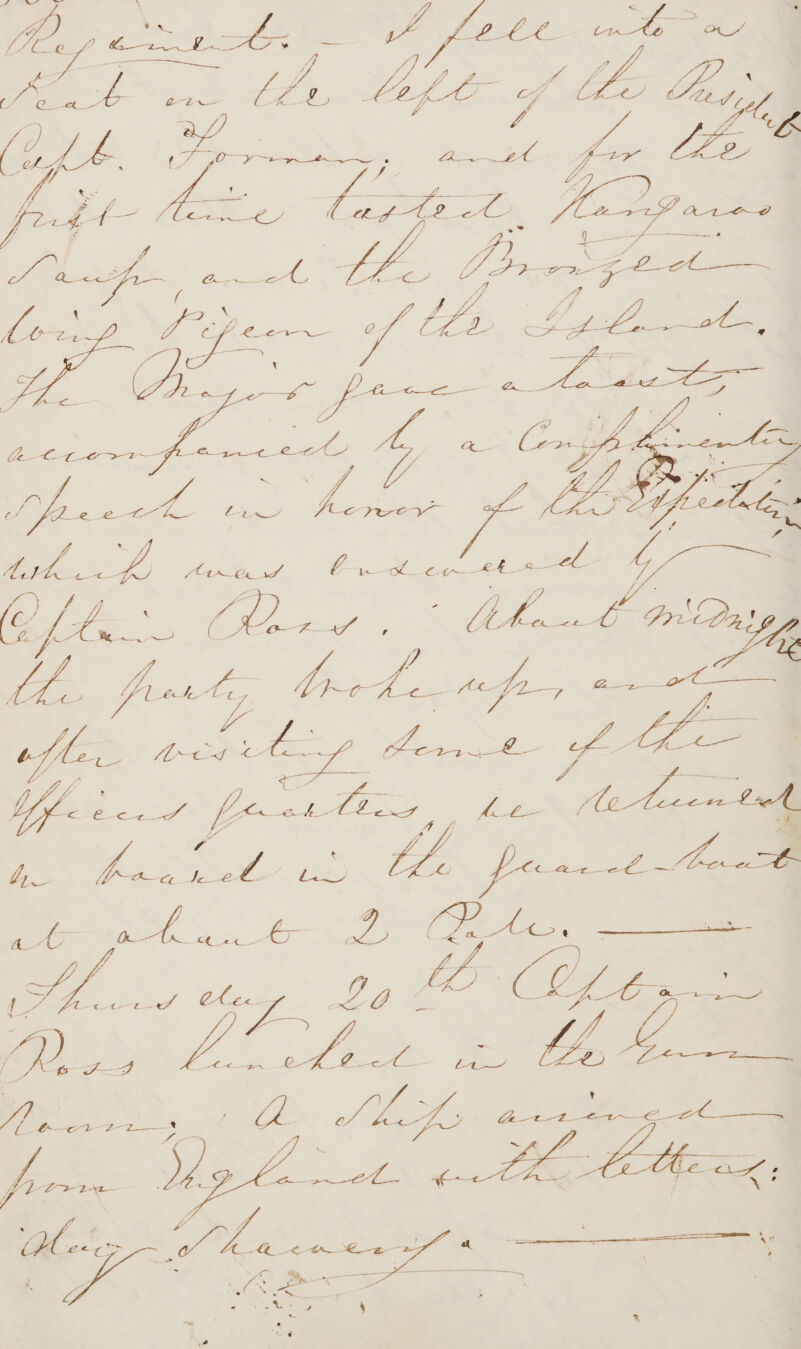 Regiment. — I fell into a
seat on the left of the President
Capt. Forman; and for the
first time tasted Kangaroo
Soup, and the Bronzed
wing Pigeon of the Island.
The Major gave a toast,
accompanied by a Complimentary
speech in honor of the Expedition,
which was answered by
Captain Ross. About midnight
the party broke up, and
after visiting some of the
Officers quarters, we returned
on board in the guard-boat
at about 2 A.M. —
Thursday 20th Captain
Ross lunched in the Gun
room; A Ship arrived
from England with letters:
day showery. —